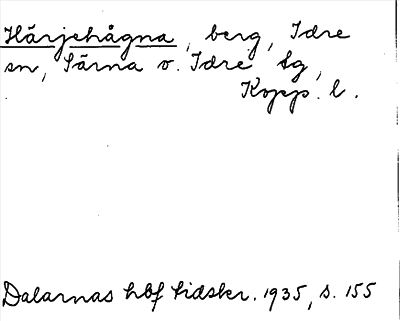 Härjehågna, berg, Idre
sn, Särna o. Idre tg,
Kopp. l.
Dalarnas hbf tidskr. 1935, s. 155